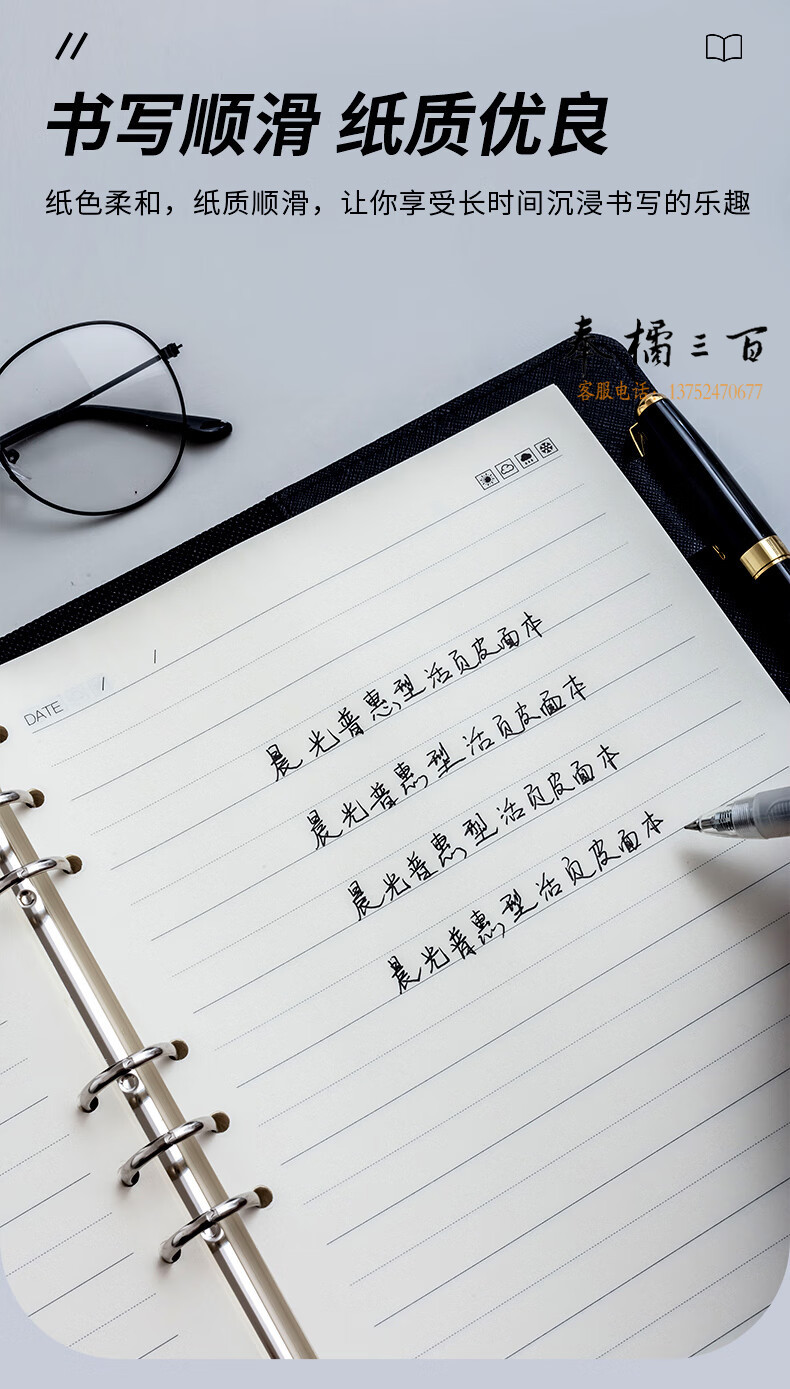 书写顺滑 纸质优良
纸色柔和，纸质顺滑，让你享受长时间沉浸书写的乐趣
奉橘三百
客服电话：13752470677
DATE / /
晨光普惠型活页皮面本
晨光普惠型活页皮面本
晨光普惠型活页皮面本
晨光普惠型活页皮面本